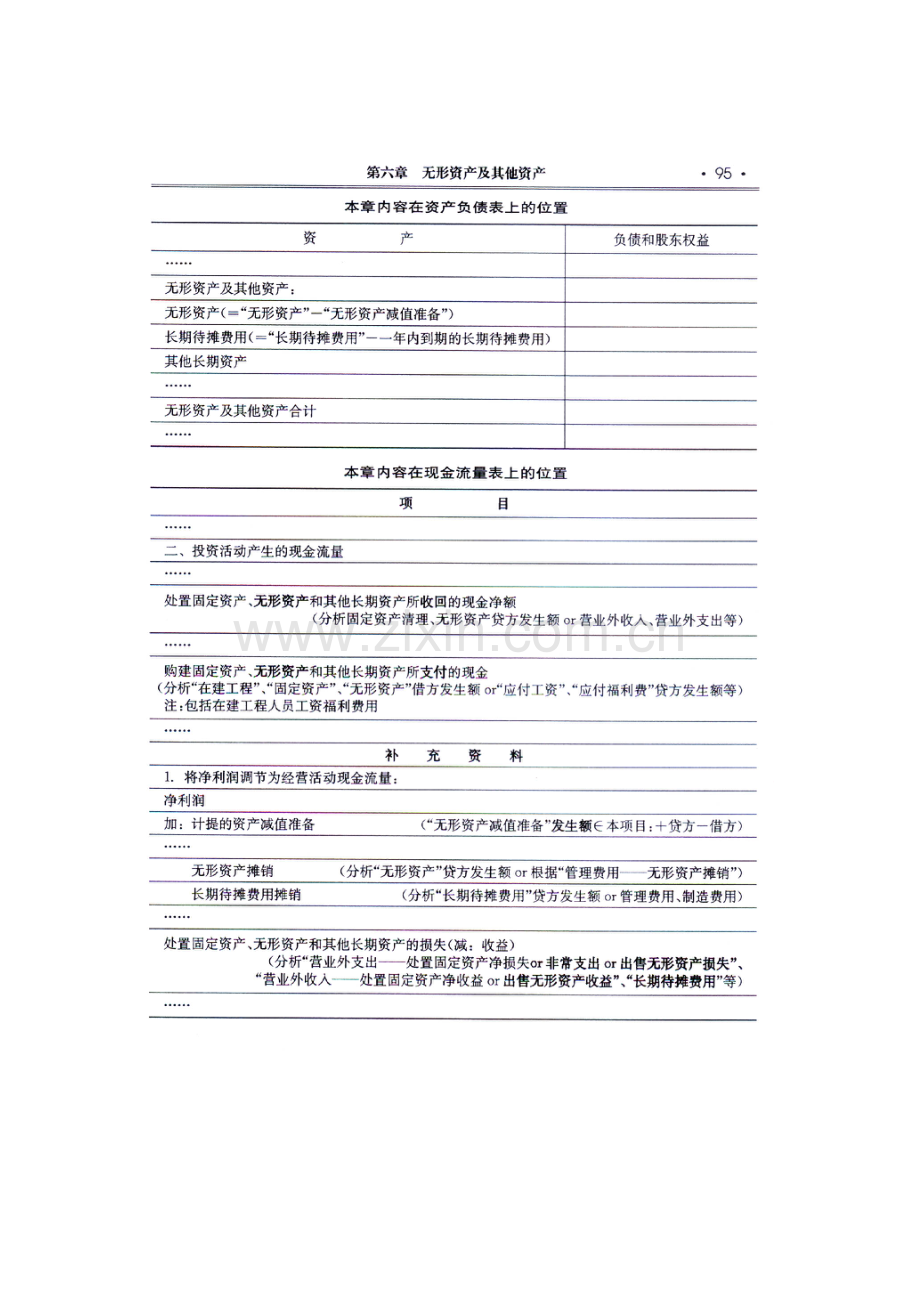 第六章 无形资产及其他资产 · 95 ·
本章内容在资产负债表上的位置
资 产 负债和股东权益
……
无形资产及其他资产：
无形资产(＝“无形资产”－“无形资产减值准备”)
长期待摊费用(＝“长期待摊费用”－一年内到期的长期待摊费用)
其他长期资产
……
无形资产及其他资产合计
……
本章内容在现金流量表上的位置
项 目
……
二、投资活动产生的现金流量
……
处置固定资产、无形资产和其他长期资产所收回的现金净额
(分析固定资产清理、无形资产贷方发生额 or 营业外收入、营业外支出等)
www.zixin.com.cn
……
购建固定资产、无形资产和其他长期资产所支付的现金
(分析“在建工程”、“固定资产”、“无形资产”借方发生额 or“应付工资”、“应付福利费”贷方发生额等)
注：包括在建工程人员工资福利费用
……
补 充 资 料
1. 将净利润调节为经营活动现金流量：
净利润
加：计提的资产减值准备 (“无形资产减值准备”发生额∈本项目：＋贷方－借方)
……
无形资产摊销 (分析“无形资产”贷方发生额 or 根据“管理费用——无形资产摊销”)
长期待摊费用摊销 (分析“长期待摊费用”贷方发生额 or 管理费用、制造费用)
……
处置固定资产、无形资产和其他长期资产的损失(减：收益)
(分析“营业外支出——处置固定资产净损失or 非常支出 or 出售无形资产损失”、
“营业外收入——处置固定资产净收益 or 出售无形资产收益”、“长期待摊费用”等)
……